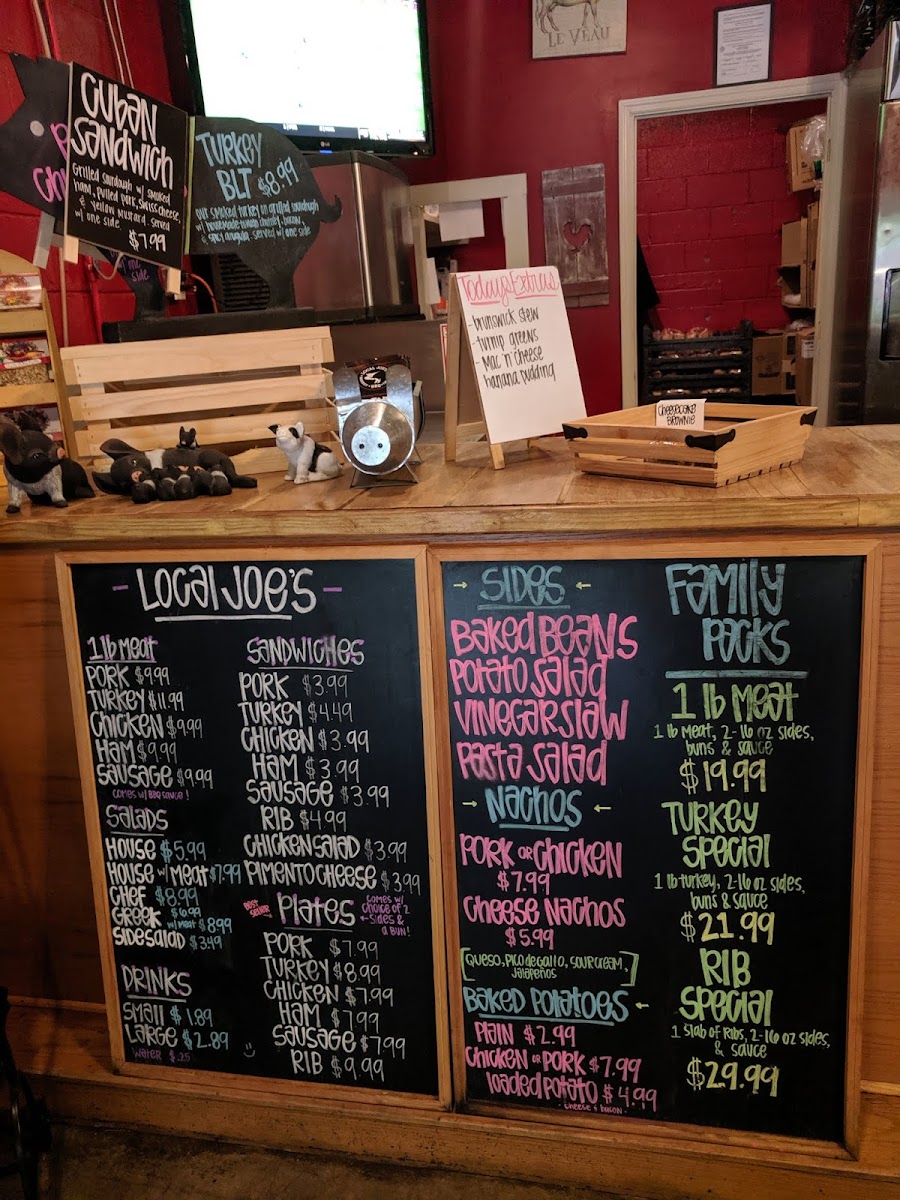 LE VEAU
CUBAN
SANDWICH
Grilled sourdough w/ smoked
ham, pulled pork, swiss cheese,
& yellow mustard. served
w/ one side
$7.99
TURKEY
BLT $8.99
our smoked turkey on grilled sourdough
w/ homemade tomato chutney, bacon,
& spicy arugula. served w/ one side
side
Today's Extras
- brunswick stew
- turnip greens
- Mac n' cheese
banana pudding
cheesecake
BROWNIE
LOCAL JOE'S
1 lb MEAT
PORK $9.99
TURKEY $11.99
CHICKEN $9.99
HAM $9.99
SAUSAGE $9.99
COMES W/ BBQ SAUCE!
SALADS
HOUSE $5.99
HOUSE W/ MEAT $7.99
CHEF $8.99
GREEK $6.99
W/ MEAT $8.99
SIDE SALAD $3.49
DRINKS
SMALL $1.89
LARGE $2.89
WATER $.25
SANDWICHES
PORK $3.99
TURKEY $4.49
CHICKEN $3.99
HAM $3.99
SAUSAGE $3.99
RIB $4.99
CHICKEN SALAD $3.99
PIMENTO CHEESE $3.99
BEST SELLER
PLATES
COMES W/
CHOICE OF 2
SIDES &
a BUN!
PORK $7.99
TURKEY $8.99
CHICKEN $7.99
HAM $7.99
SAUSAGE $7.99
RIB $9.99
SIDES
BAKED BEANS
POTATO SALAD
VINEGAR SLAW
PASTA SALAD
NACHOS
PORK OR CHICKEN
$7.99
CHEESE NACHOS
$5.99
[QUESO, PICO DE GALLO, SOUR CREAM,
JALAPEÑOS]
BAKED POTATOES
PLAIN $2.99
CHICKEN OR PORK $7.99
LOADED POTATO $4.99
- cheese & bacon -
FAMILY
PACKS
1 lb MEAT
1 lb MEAT, 2-16 oz SIDES,
buns & sauce
$19.99
TURKEY
SPECIAL
1 lb turkey, 2-16 oz sides,
buns & sauce
$21.99
RIB
SPECIAL
1 slab of ribs, 2-16 oz sides,
& sauce
$29.99